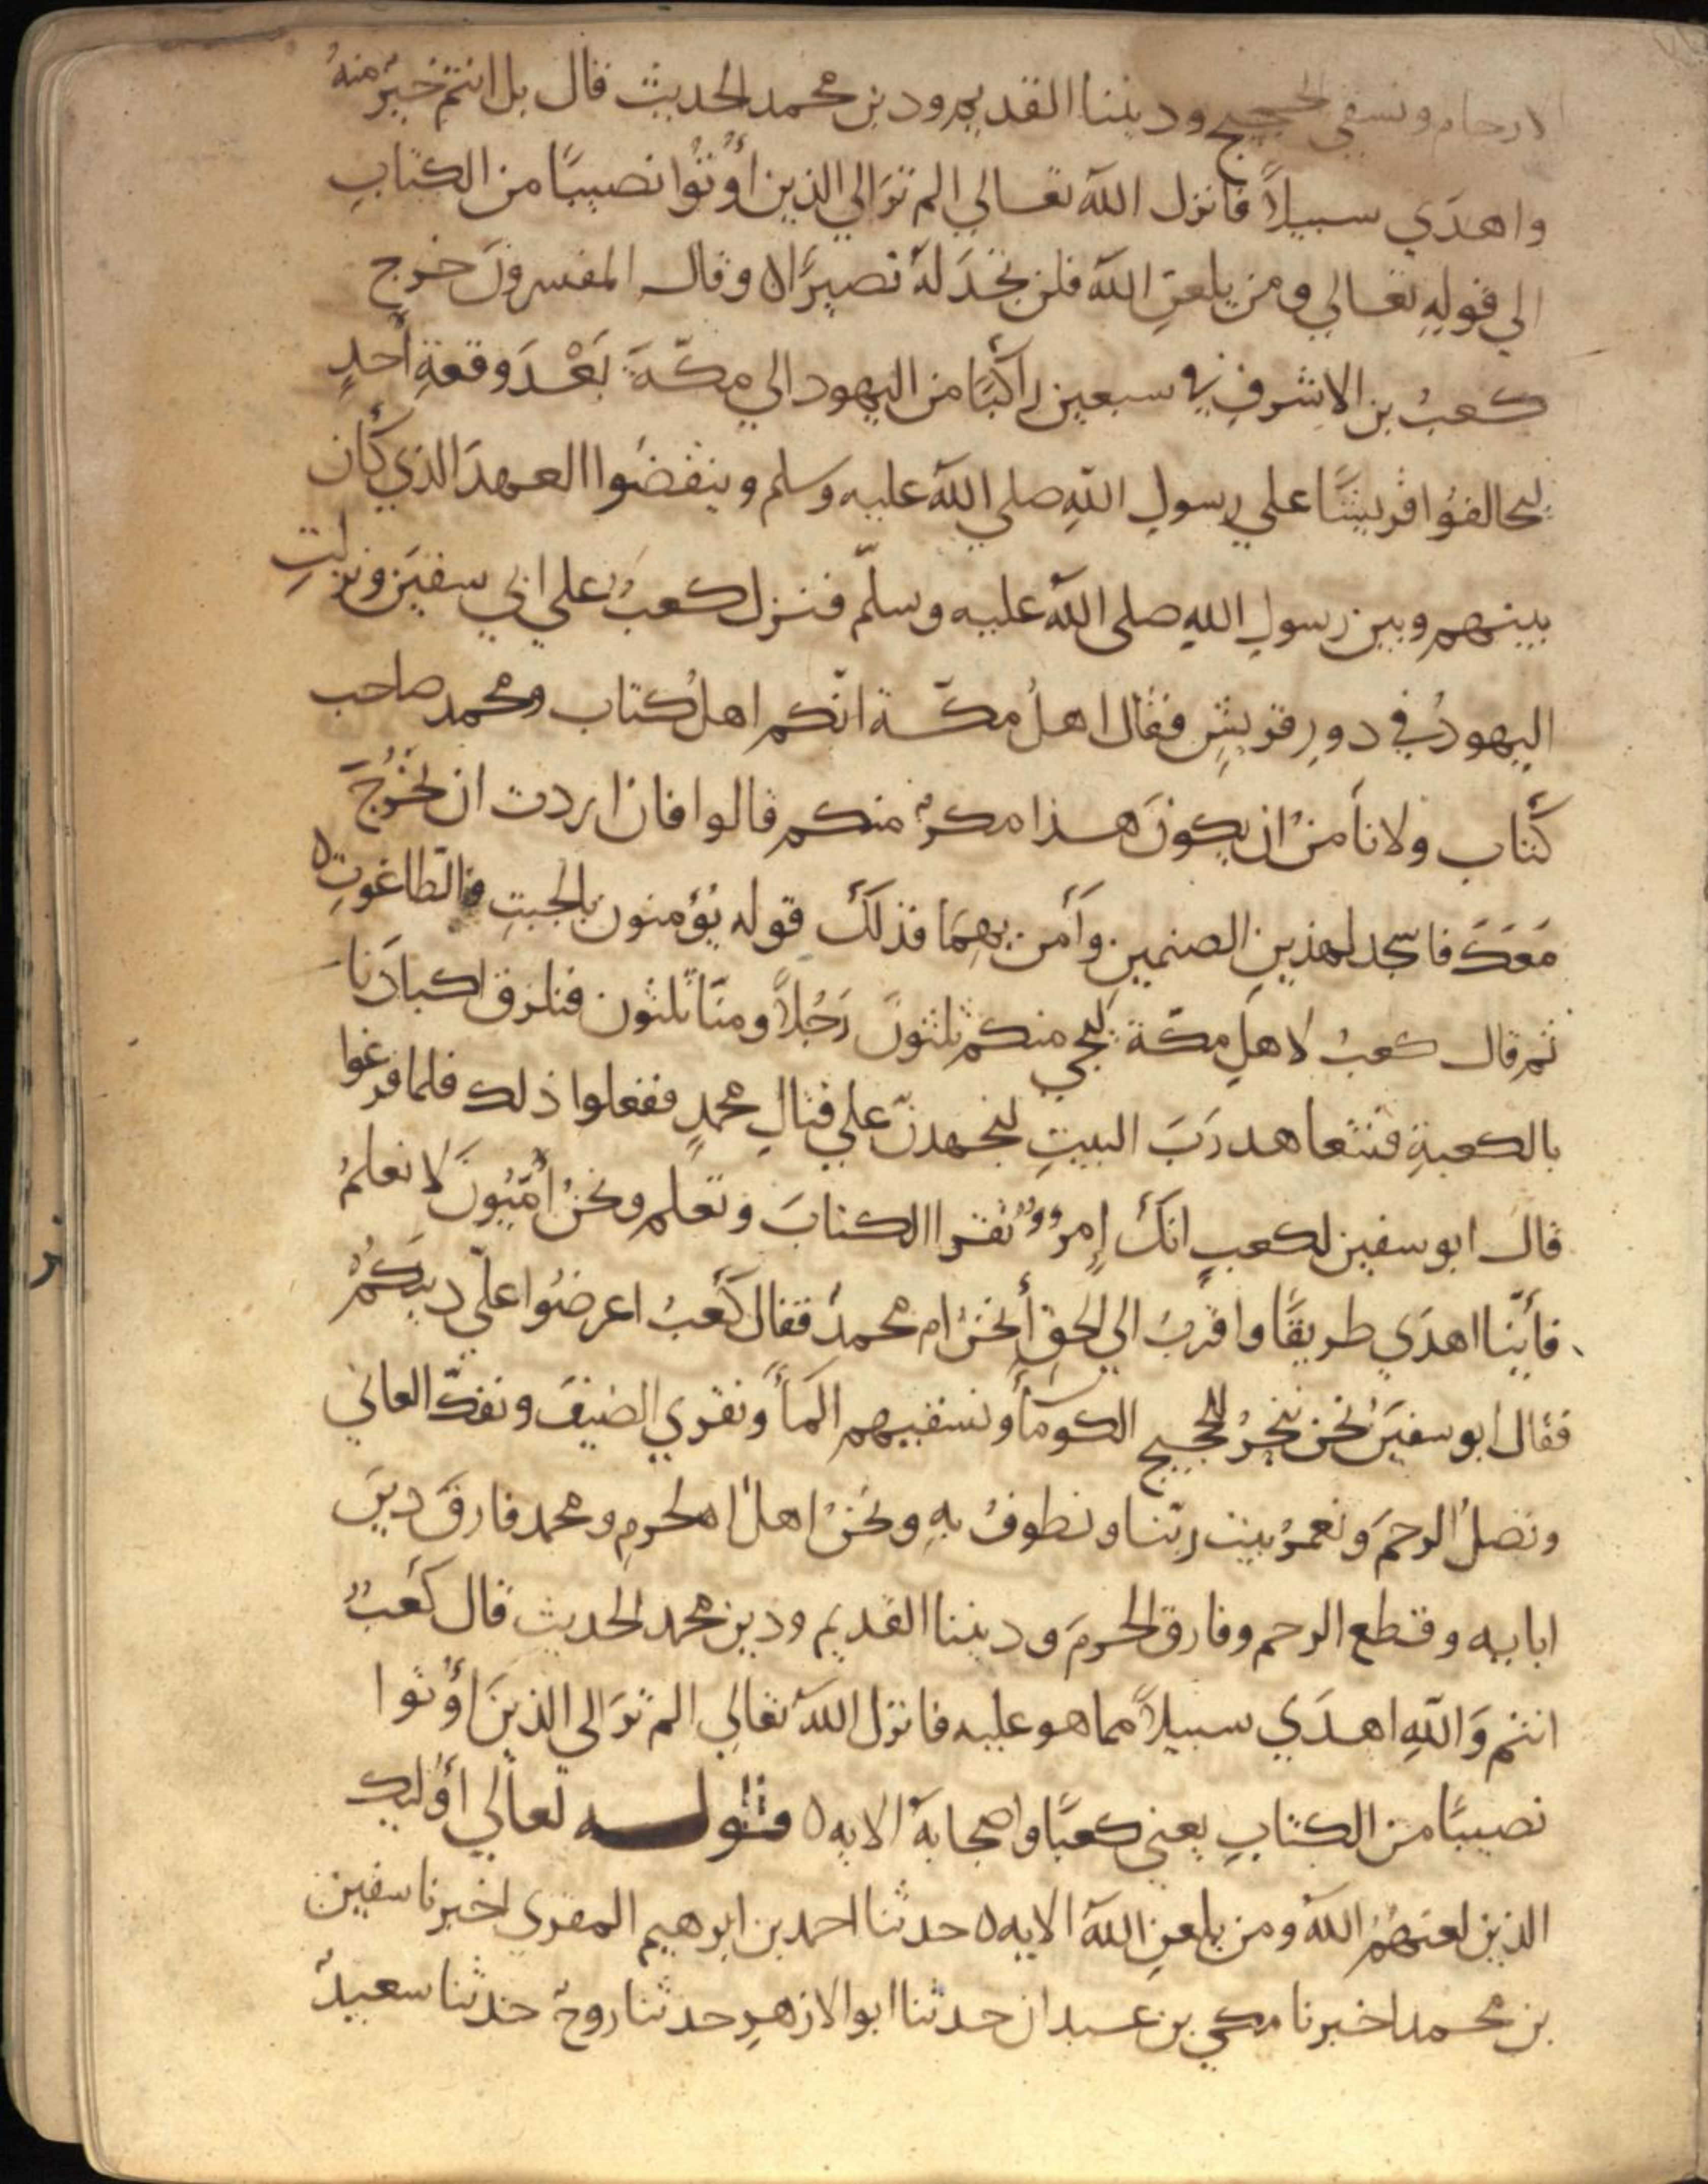 الارحام ونسقي الحجيج وديننا القديم ودين محمد الحديث قال بل انتم خيرٌ منهُ
واهدَي سبيلاً فانزل اللهُ تعالي الم ترَ الي الذين أُوتُوا نصيبًا من الكتابِ
الي قولهِ تعالي ومن يلعنِ اللهُ فلن تجدَ لهُ نصيرًا ٥ وقال المفسرونَ خرج
كعبُ بن الاشرفِ في سبعين راكبًا من اليهود الي مكّةَ بَعْدَ وقعةِ أُحدٍ
ليحالفُوا قريشًا علي رسولِ اللهِ صلي اللهُ عليه وسلم وينقضُوا العهدَ الذي كان
بينهم وبين رسولِ اللهِ صلى اللهُ عليه وسلّم فنزل كعبٌ علي ابي سفيَن ونزلتِ
اليهودُ في دورِ قريشٍ فقال اهلُ مكّة انّكم اهلُ كتاب ومحمد صاحب
كتاب ولا نأمنُ ان يكونَ هذا مكرٌ منكم قالوا فان اردت ان نخرُجَ
مَعَكَ فاسجد لهذينِ الصنمين وآمن بهِمَا فذلك قوله يُؤمنون بالجبتِ والطّاغوتِ ٥
ثم قال كعبُ لاهلِ مكّة ليجي منكم ثلثونَ رَجُلاً ومنّا ثلثون فنلزق اكبادَنا
بالكعبةِ فنتعاهد رَبَ البيتِ لنجهدنّ علي قتالِ محمدٍ ففعلوا ذلك فلما فرغوا
قالَ ابو سفين لكعبٍ انك إمروٌ تقرا الكتابَ وتعلم ونحنُ أُمّيُونَ لا نعلمُ
فأيّنا اهدَي طريقًا واقربُ الي الحقِ أنحنُ ام محمدٌ فقال كعبُ اعرضُوا عليّ دينكُمْ
فقال ابو سفيَن نحن ننحرُ للحجيج الكومآ ونسقيهم المآ ونقري الضيفَ ونفكّ العاني
ونصلُ الرحمَ ونعمرُ بيت ربّنا ونطوفُ بهِ ونحنُ اهلُ الحرمِ ومحمد فارقَ دينَ
ابايه وقطع الرحم وفارق الحرمَ وديننا القديم ودين محمد الحديث قال كعَبٌ
انتم وَاللهِ اهدَي سبيلاً مما هو عليه فانزل اللهُ تعالي الم ترَ الى الذينَ أُوتوا
نصيبًا من الكتابِ يعني كعبًا واصحابهُ الايه ٥ قوله تعالي أوليك
الذين لعنهُمُ اللهُ ومن يلعنِ اللهُ الايه ٥ حدثنا احمد بن ابرهيم المقري اخبرنا سفين
بن محمد اخبرنا مكي بن عبدان حدثنا ابو الازهرِ حدثنا روحٌ حدثنا سعيدٌ